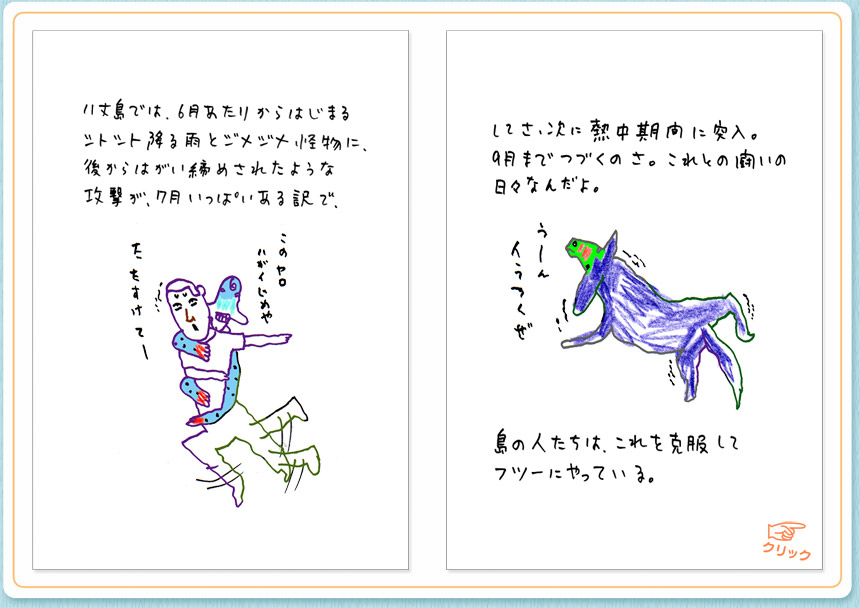 八丈島では、6月あたりからはじまる
シトシト降る雨とジメジメ怪物に、
後からはがい締めされたような
攻撃が、7月いっぱいある訳で、
このヤロ
たーすけてー
してさ、次に熱中期間に突入。
9月までつづくのさ。これとの闘いの
日々なんだよ。
うーん
島の人たちは、これを克服して
フツーにやっている。
クリック